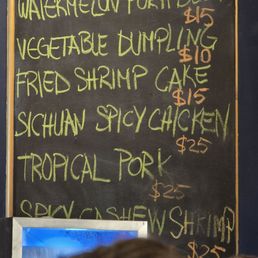 WATERMELON PORK BELLY
$15
VEGETABLE DUMPLING
$10
FRIED SHRIMP CAKE
$15
SICHUAN SPICY CHICKEN
$25
TROPICAL PORK
$25
SPICY CASHEW SHRIMP
$25